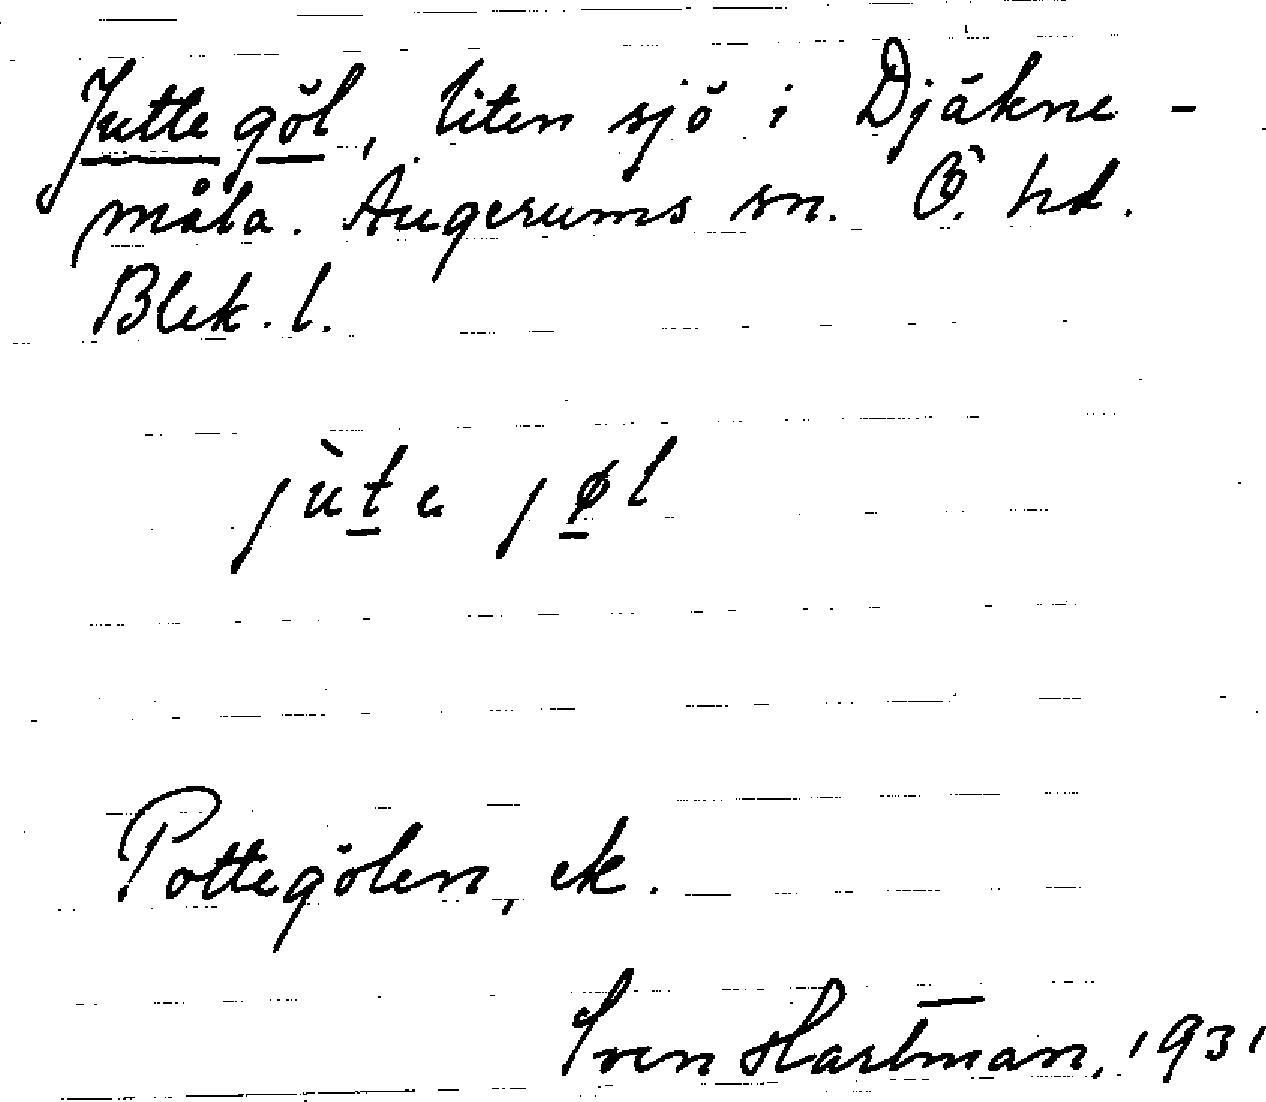 Juttegöl, liten sjö i Djäkne-
måla. Augerums sn. Ö. hd.
Blek. l.
jùte jøl
Pottegölen, ek.
Sven Hartman, 1931